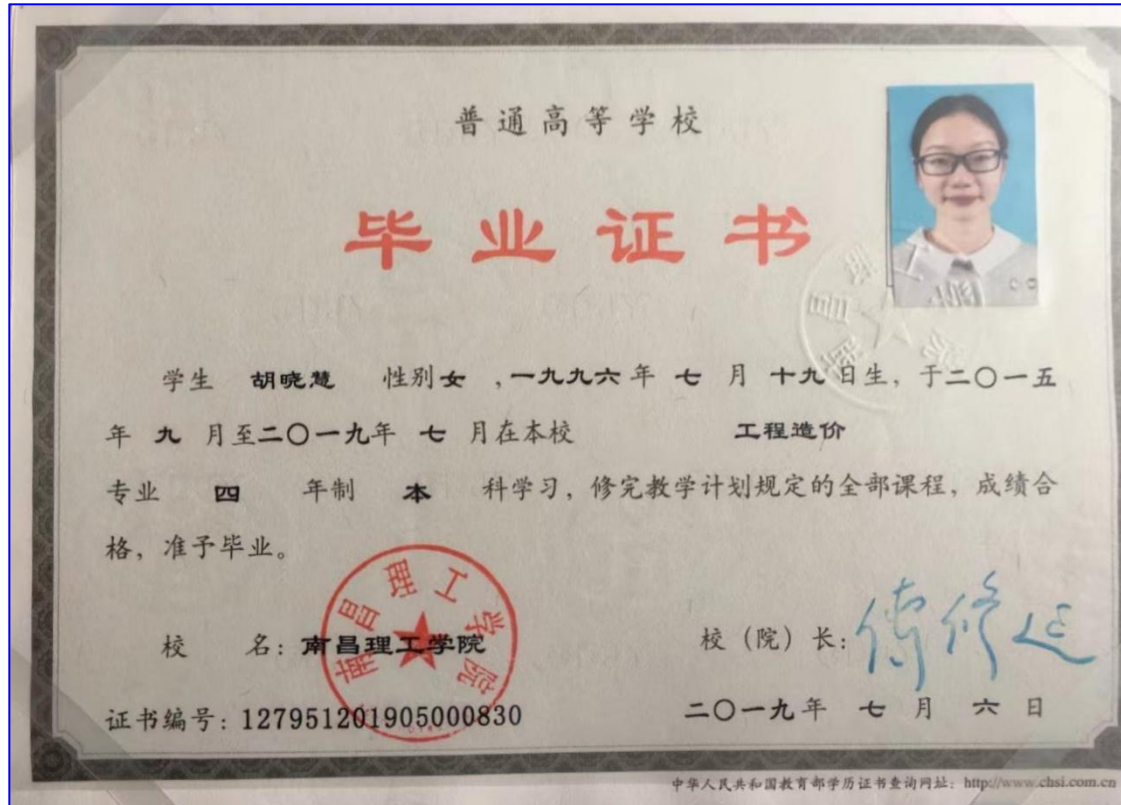 普通高等学校
毕业证书
学生 胡晓慧 性别女 ,一九九六年 七 月 十九日生, 于二〇一五
年 九 月至二〇一九年 七 月在本校 工程造价
专业 四 年制 本 科学习, 修完教学计划规定的全部课程, 成绩合
格, 准予毕业。
南昌理工学院
校 名: 南昌理工学院 校(院)长: 傅修延
证书编号: 127951201905000830 二〇一九年 七 月 六 日
中华人民共和国教育部学历证书查询网址: http://www.chsi.com.cn